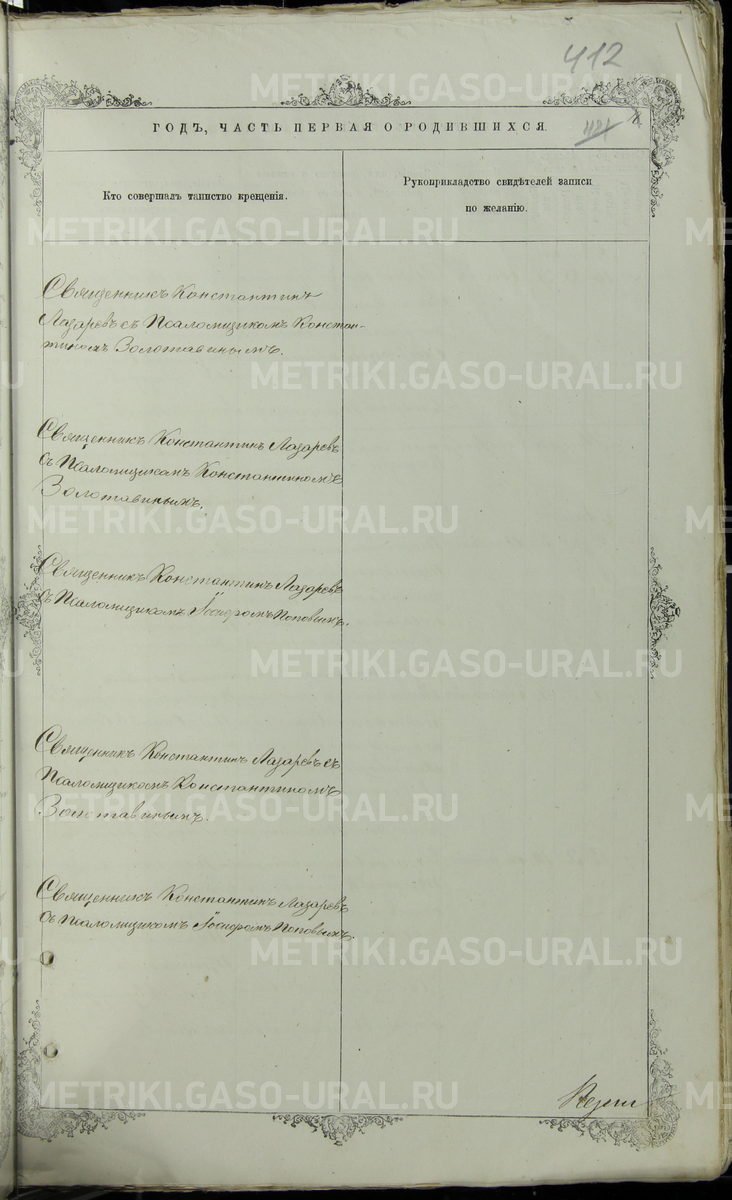 412
ГОДЪ, ЧАСТЬ ПЕРВАЯ О РОДИВШИХСЯ.
Кто совершалъ таинство крещенія.
Рукоприкладство свидѣтелей записи
по желанію.
Священникъ Константинъ
Лазаревъ съ Псаломщикомъ Констан-
тиномъ Золотавинымъ.
Священникъ Константинъ Лазаревъ
съ Псаломщикомъ Константиномъ
Золотавинымъ.
Священникъ Константинъ Лазаревъ
съ Псаломщикомъ Іосифомъ Поповымъ.
Священникъ Константинъ Лазаревъ съ
Псаломщикомъ Константиномъ
Золотавинымъ.
Священникъ Константинъ Лазаревъ
съ Псаломщикомъ Іосифомъ Поповымъ.
METRIKI.GASO-URAL.RU